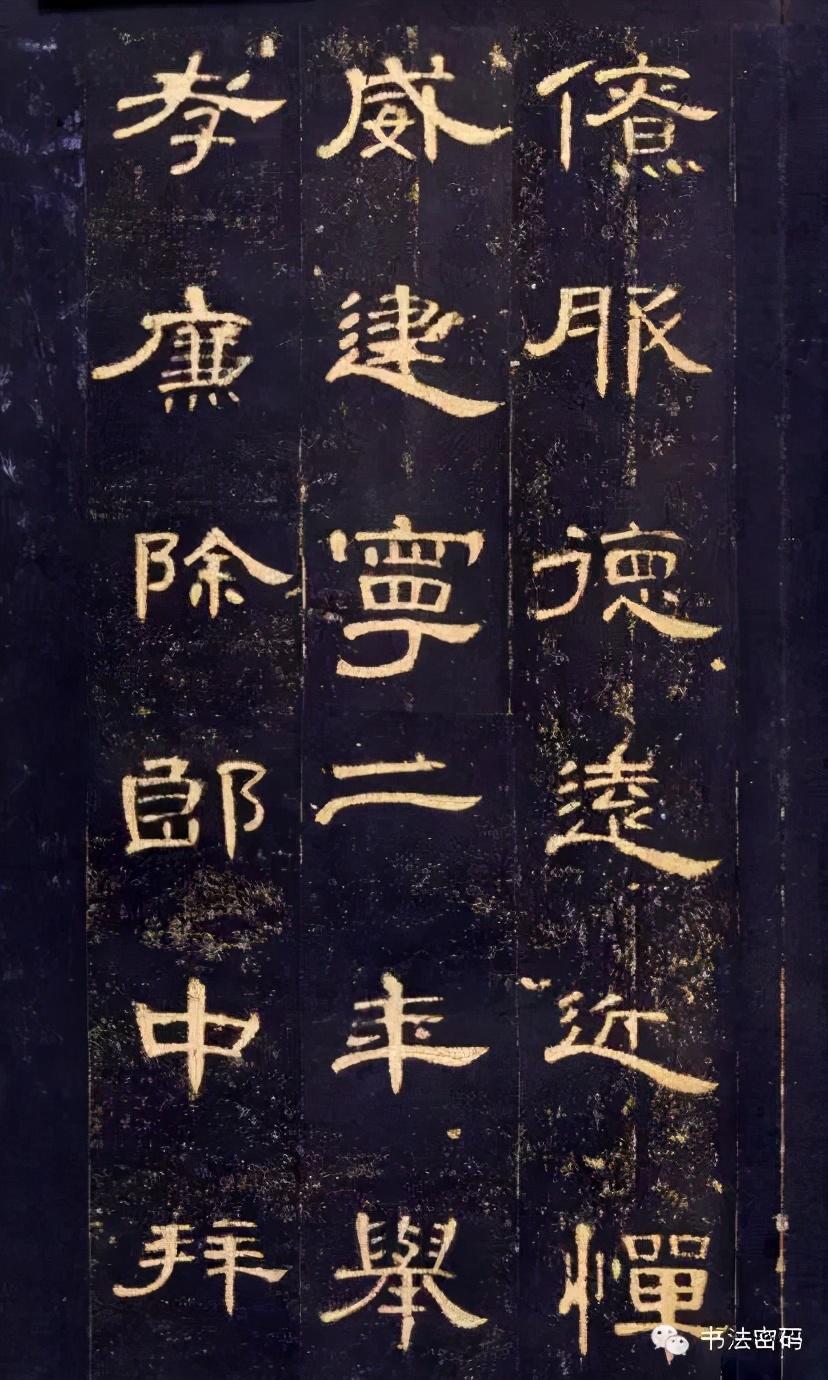 僚服德遠近憚
威建寧二年舉
孝廉除郎中拜
书法密码